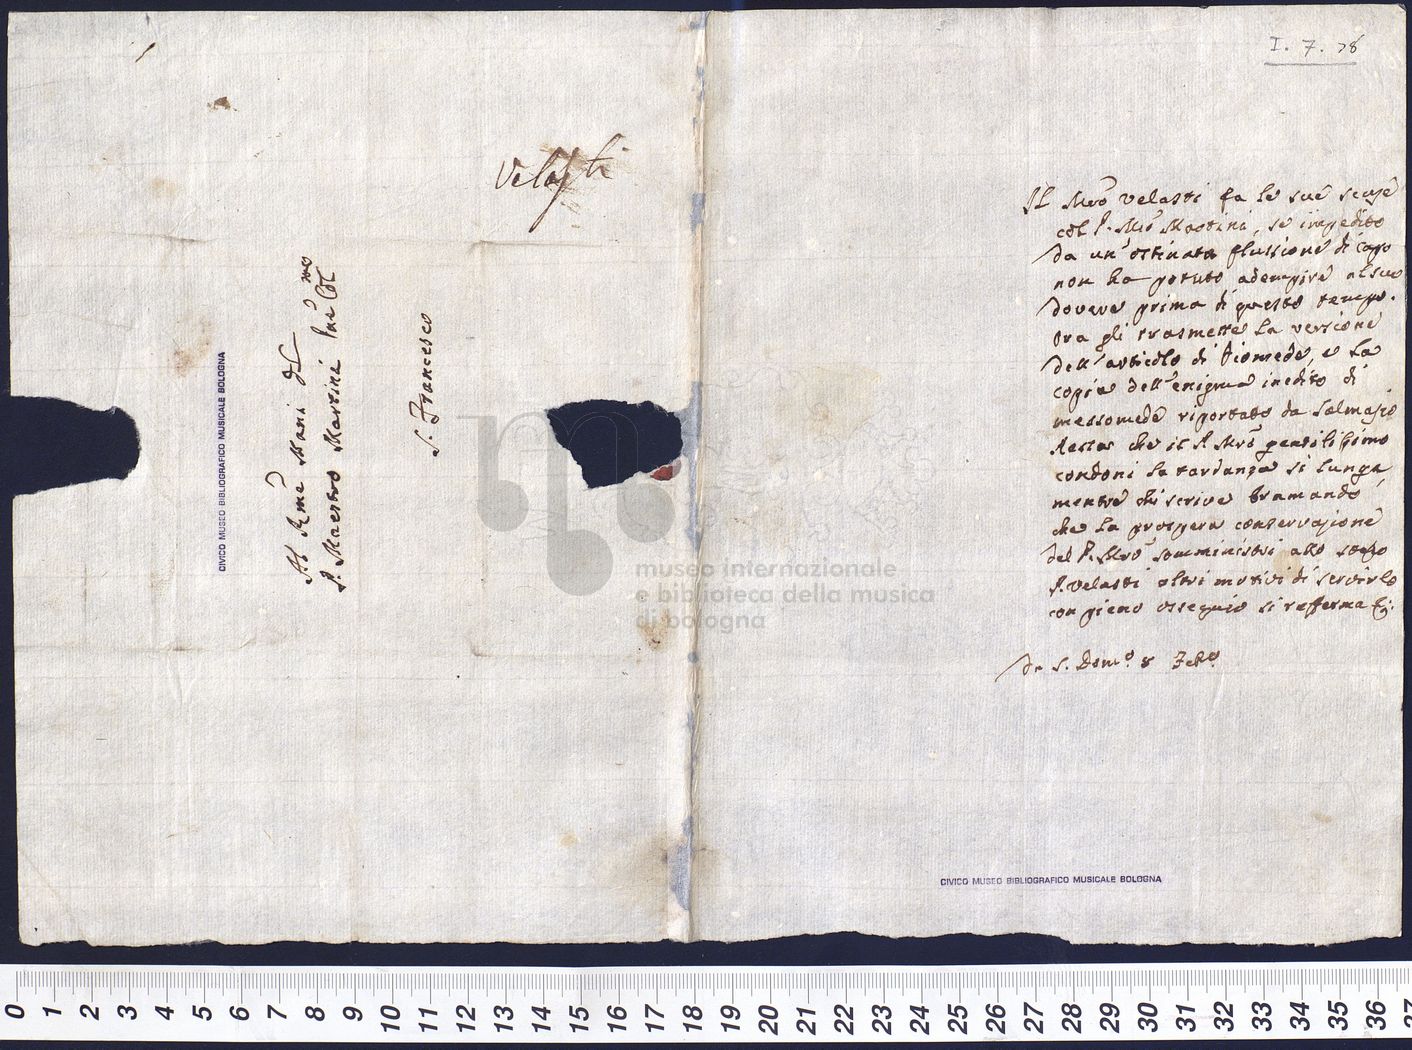 Velasti
Al Rme Mani del
P. Maestro Martini Pne Col mo
S. Francesco
CIVICO MUSEO BIBLIOGRAFICO MUSICALE BOLOGNA
museo internazionale
e biblioteca della musica
di bologna
I. 7. 78
Il Mro Velasti fa le sue scuse
col P. Mro Martini, se impedito
da un' ostinata flussione di capo
non ha potuto adempire al suo
dovere prima di questo tempo.
Ora gli trasmette la versione
dell' articolo di Diomede, e la
copia dell' enigma inedito di
messomede riportato da Salmasio
Resta che il P. Mro gentilissimo
condoni la tardanza si lunga
mentre chi scrive bramando
che la prospera conservazione
del P. Mro somministri allo stesso
P. Velasti altri motivi di servirlo
con pieno ossequio si rafferma
Da S. Domo. 8 Febo.
CIVICO MUSEO BIBLIOGRAFICO MUSICALE BOLOGNA
0 1 2 3 4 5 6 7 8 9 10 11 12 13 14 15 16 17 18 19 20 21 22 23 24 25 26 27 28 29 30 31 32 33 34 35 36 37